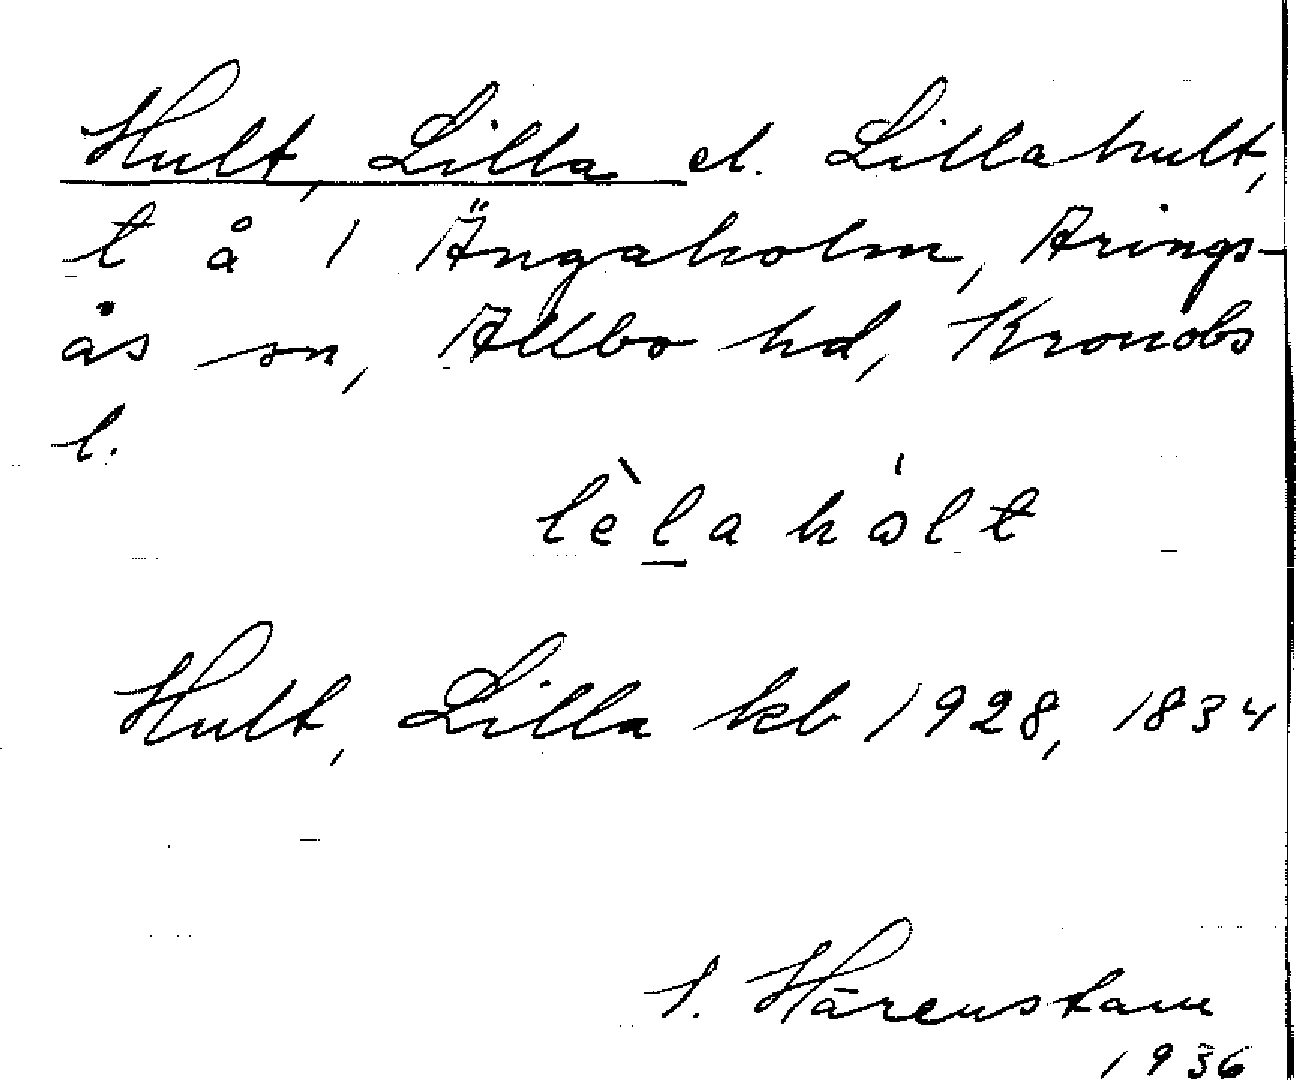 Hult, Lilla el. Lillahult,
t å 1 Ängaholm, Arings-
ås sn, Allbo hd, Kronobs
l.
lèlahólt
Hult, Lilla kb 1928, 1834
S. Härenstam
1936